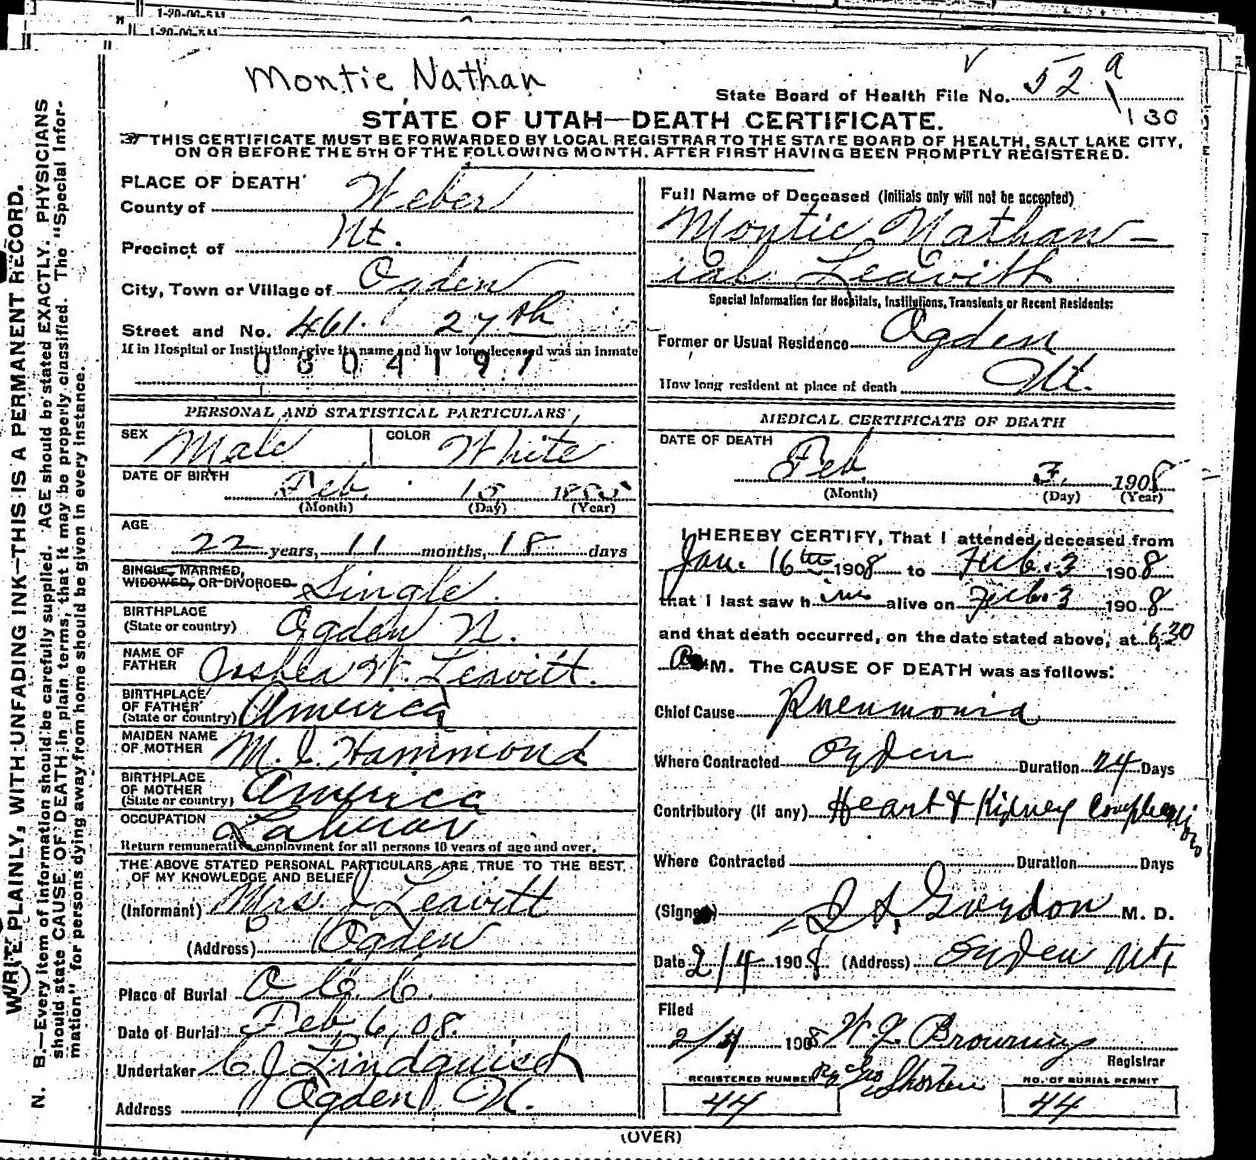 1-20-06-5M
1-20-06-5M
Montie Nathan
State Board of Health File No. 52 a
130
STATE OF UTAH—DEATH CERTIFICATE.
THIS CERTIFICATE MUST BE FORWARDED BY LOCAL REGISTRAR TO THE STATE BOARD OF HEALTH, SALT LAKE CITY,
ON OR BEFORE THE 5TH OF THE FOLLOWING MONTH, AFTER FIRST HAVING BEEN PROMPTLY REGISTERED.
WRITE PLAINLY, WITH UNFADING INK—THIS IS A PERMANENT RECORD.
N. B.—Every item of information should be carefully supplied. AGE should be stated EXACTLY. PHYSICIANS
should state CAUSE OF DEATH in plain terms, that it may be properly classified. The "Special Infor-
mation" for persons dying away from home should be given in every instance.
PLACE OF DEATH
County of Weber
Precinct of Ut.
City, Town or Village of Ogden
Street and No. 461. 27th
If in Hospital or Institution, give its name and how long deceased was an inmate
0804197
PERSONAL AND STATISTICAL PARTICULARS
SEX Male COLOR White
DATE OF BIRTH Feb 15 1885
(Month) (Day) (Year)
AGE
22 years, 11 months, 18 days
SINGLE, MARRIED,
WIDOWED, OR DIVORCED Single.
BIRTHPLACE
(State or country) Ogden U.
NAME OF
FATHER W. Leavitt.
BIRTHPLACE
OF FATHER
(State or country) America
MAIDEN NAME
OF MOTHER M. I. Hammond
BIRTHPLACE
OF MOTHER
(State or country) America
OCCUPATION Laborar
Return remunerative employment for all persons 10 years of age and over.
THE ABOVE STATED PERSONAL PARTICULARS ARE TRUE TO THE BEST
OF MY KNOWLEDGE AND BELIEF
(Informant) Mrs. J Leavitt
(Address) Ogden
Place of Burial O C. C.
Date of Burial Feb 6, 08.
Undertaker C J Lindquist
Address Ogden U.
Full Name of Deceased (Initials only will not be accepted)
Montie Nathan-
ial Leavitt
Special Information for Hospitals, Institutions, Transients or Recent Residents:
Former or Usual Residence Ogden
How long resident at place of death Ut.
MEDICAL CERTIFICATE OF DEATH
DATE OF DEATH Feb 3, 1908
(Month) (Day) (Year)
I HEREBY CERTIFY, That I attended deceased from
Jan. 16th 1908 to Feb. 3 1908
that I last saw him alive on Feb. 3 1908
and that death occurred, on the date stated above, at 6:30
M. The CAUSE OF DEATH was as follows:
Chief Cause Pneumonia
Where Contracted Ogden Duration 24 Days
Contributory (if any) Heart & Kidney Complication
Where Contracted Duration Days
(Signed) Gordon M. D.
Date 2/4 1908 (Address) Ogden Ut,
Filed
2/4 1908 W. Browning
Registrar
REGISTERED NUMBER 44
NO. OF BURIAL PERMIT 44
(OVER)